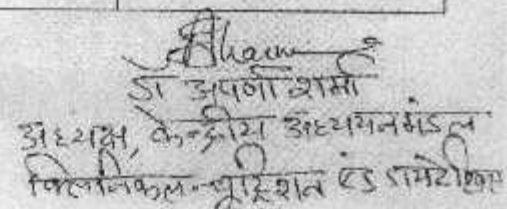 डॉ अपर्णा शर्मा
अध्यक्ष, केन्द्रीय अध्ययनमंडल
क्लिनिकल न्यूट्रिशन एंड डायटेटिक्स